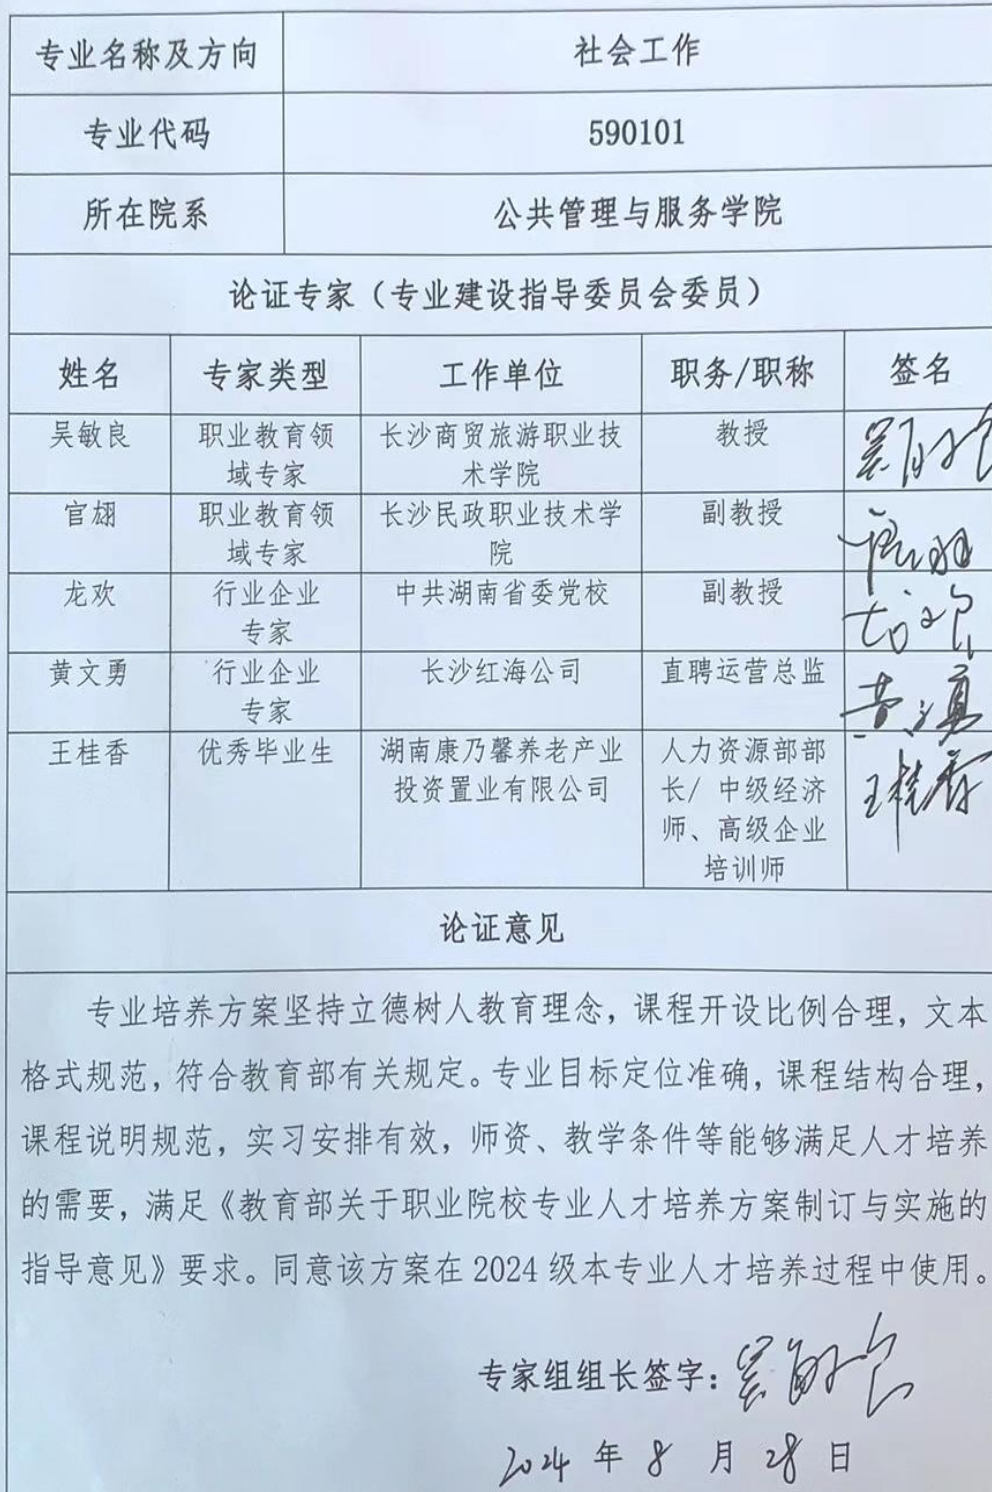 专业名称及方向 社会工作
专业代码 590101
所在院系 公共管理与服务学院
论证专家（专业建设指导委员会委员）
姓名 专家类型 工作单位 职务/职称 签名
吴敏良 职业教育领 长沙商贸旅游职业技 教授 吴敏良
域专家 术学院
官翃 职业教育领 长沙民政职业技术学 副教授 官翃
域专家 院
龙欢 行业企业 中共湖南省委党校 副教授
专家
黄文勇 行业企业 长沙红海公司 直聘运营总监 黄文勇
专家
王桂香 优秀毕业生 湖南康乃馨养老产业 人力资源部部 王桂香
投资置业有限公司 长/ 中级经济
师、高级企业
培训师
论证意见
专业培养方案坚持立德树人教育理念，课程开设比例合理，文本
格式规范，符合教育部有关规定。专业目标定位准确，课程结构合理，
课程说明规范，实习安排有效，师资、教学条件等能够满足人才培养
的需要，满足《教育部关于职业院校专业人才培养方案制订与实施的
指导意见》要求。同意该方案在 2024 级本专业人才培养过程中使用。
专家组组长签字：吴敏良
2024 年 8 月 28 日